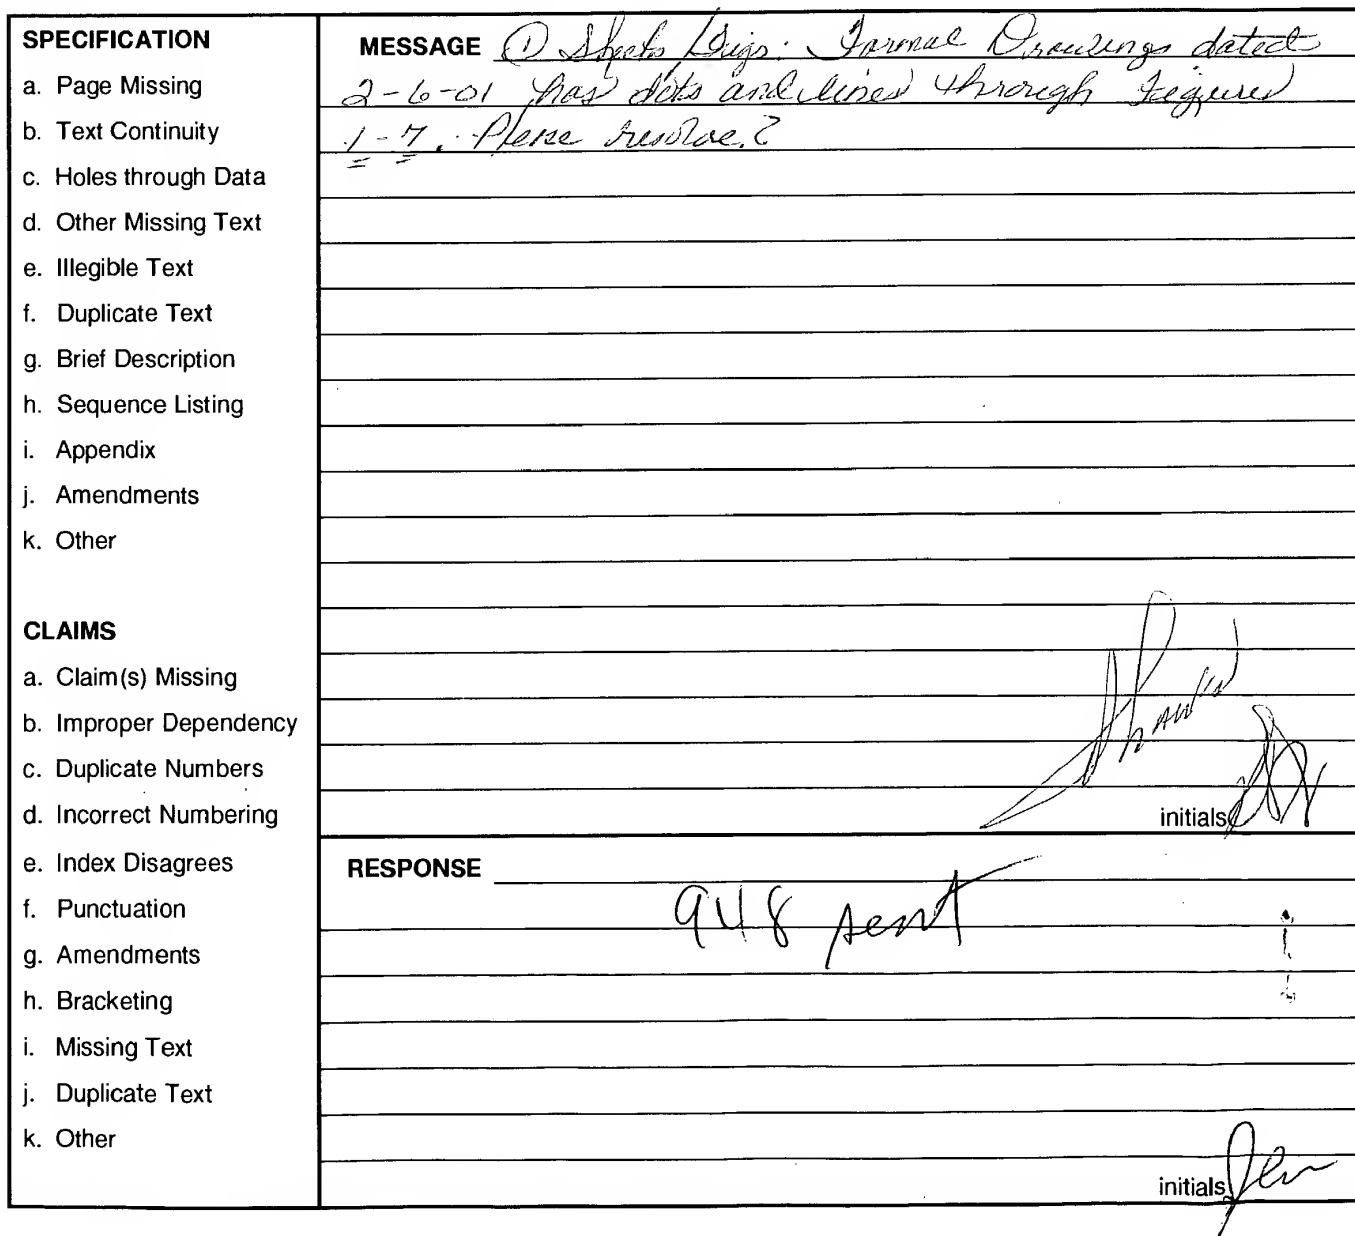 SPECIFICATION
a. Page Missing
b. Text Continuity
c. Holes through Data
d. Other Missing Text
e. Illegible Text
f. Duplicate Text
g. Brief Description
h. Sequence Listing
i. Appendix
j. Amendments
k. Other
CLAIMS
a. Claim(s) Missing
b. Improper Dependency
c. Duplicate Numbers
d. Incorrect Numbering
e. Index Disagrees
f. Punctuation
g. Amendments
h. Bracketing
i. Missing Text
j. Duplicate Text
k. Other
MESSAGE ① Shects/Figs: Formal Drawings dated
2-6-01 has dots and lines through Figures
1-7. Please resolve.
initials
RESPONSE
948 sent
initials